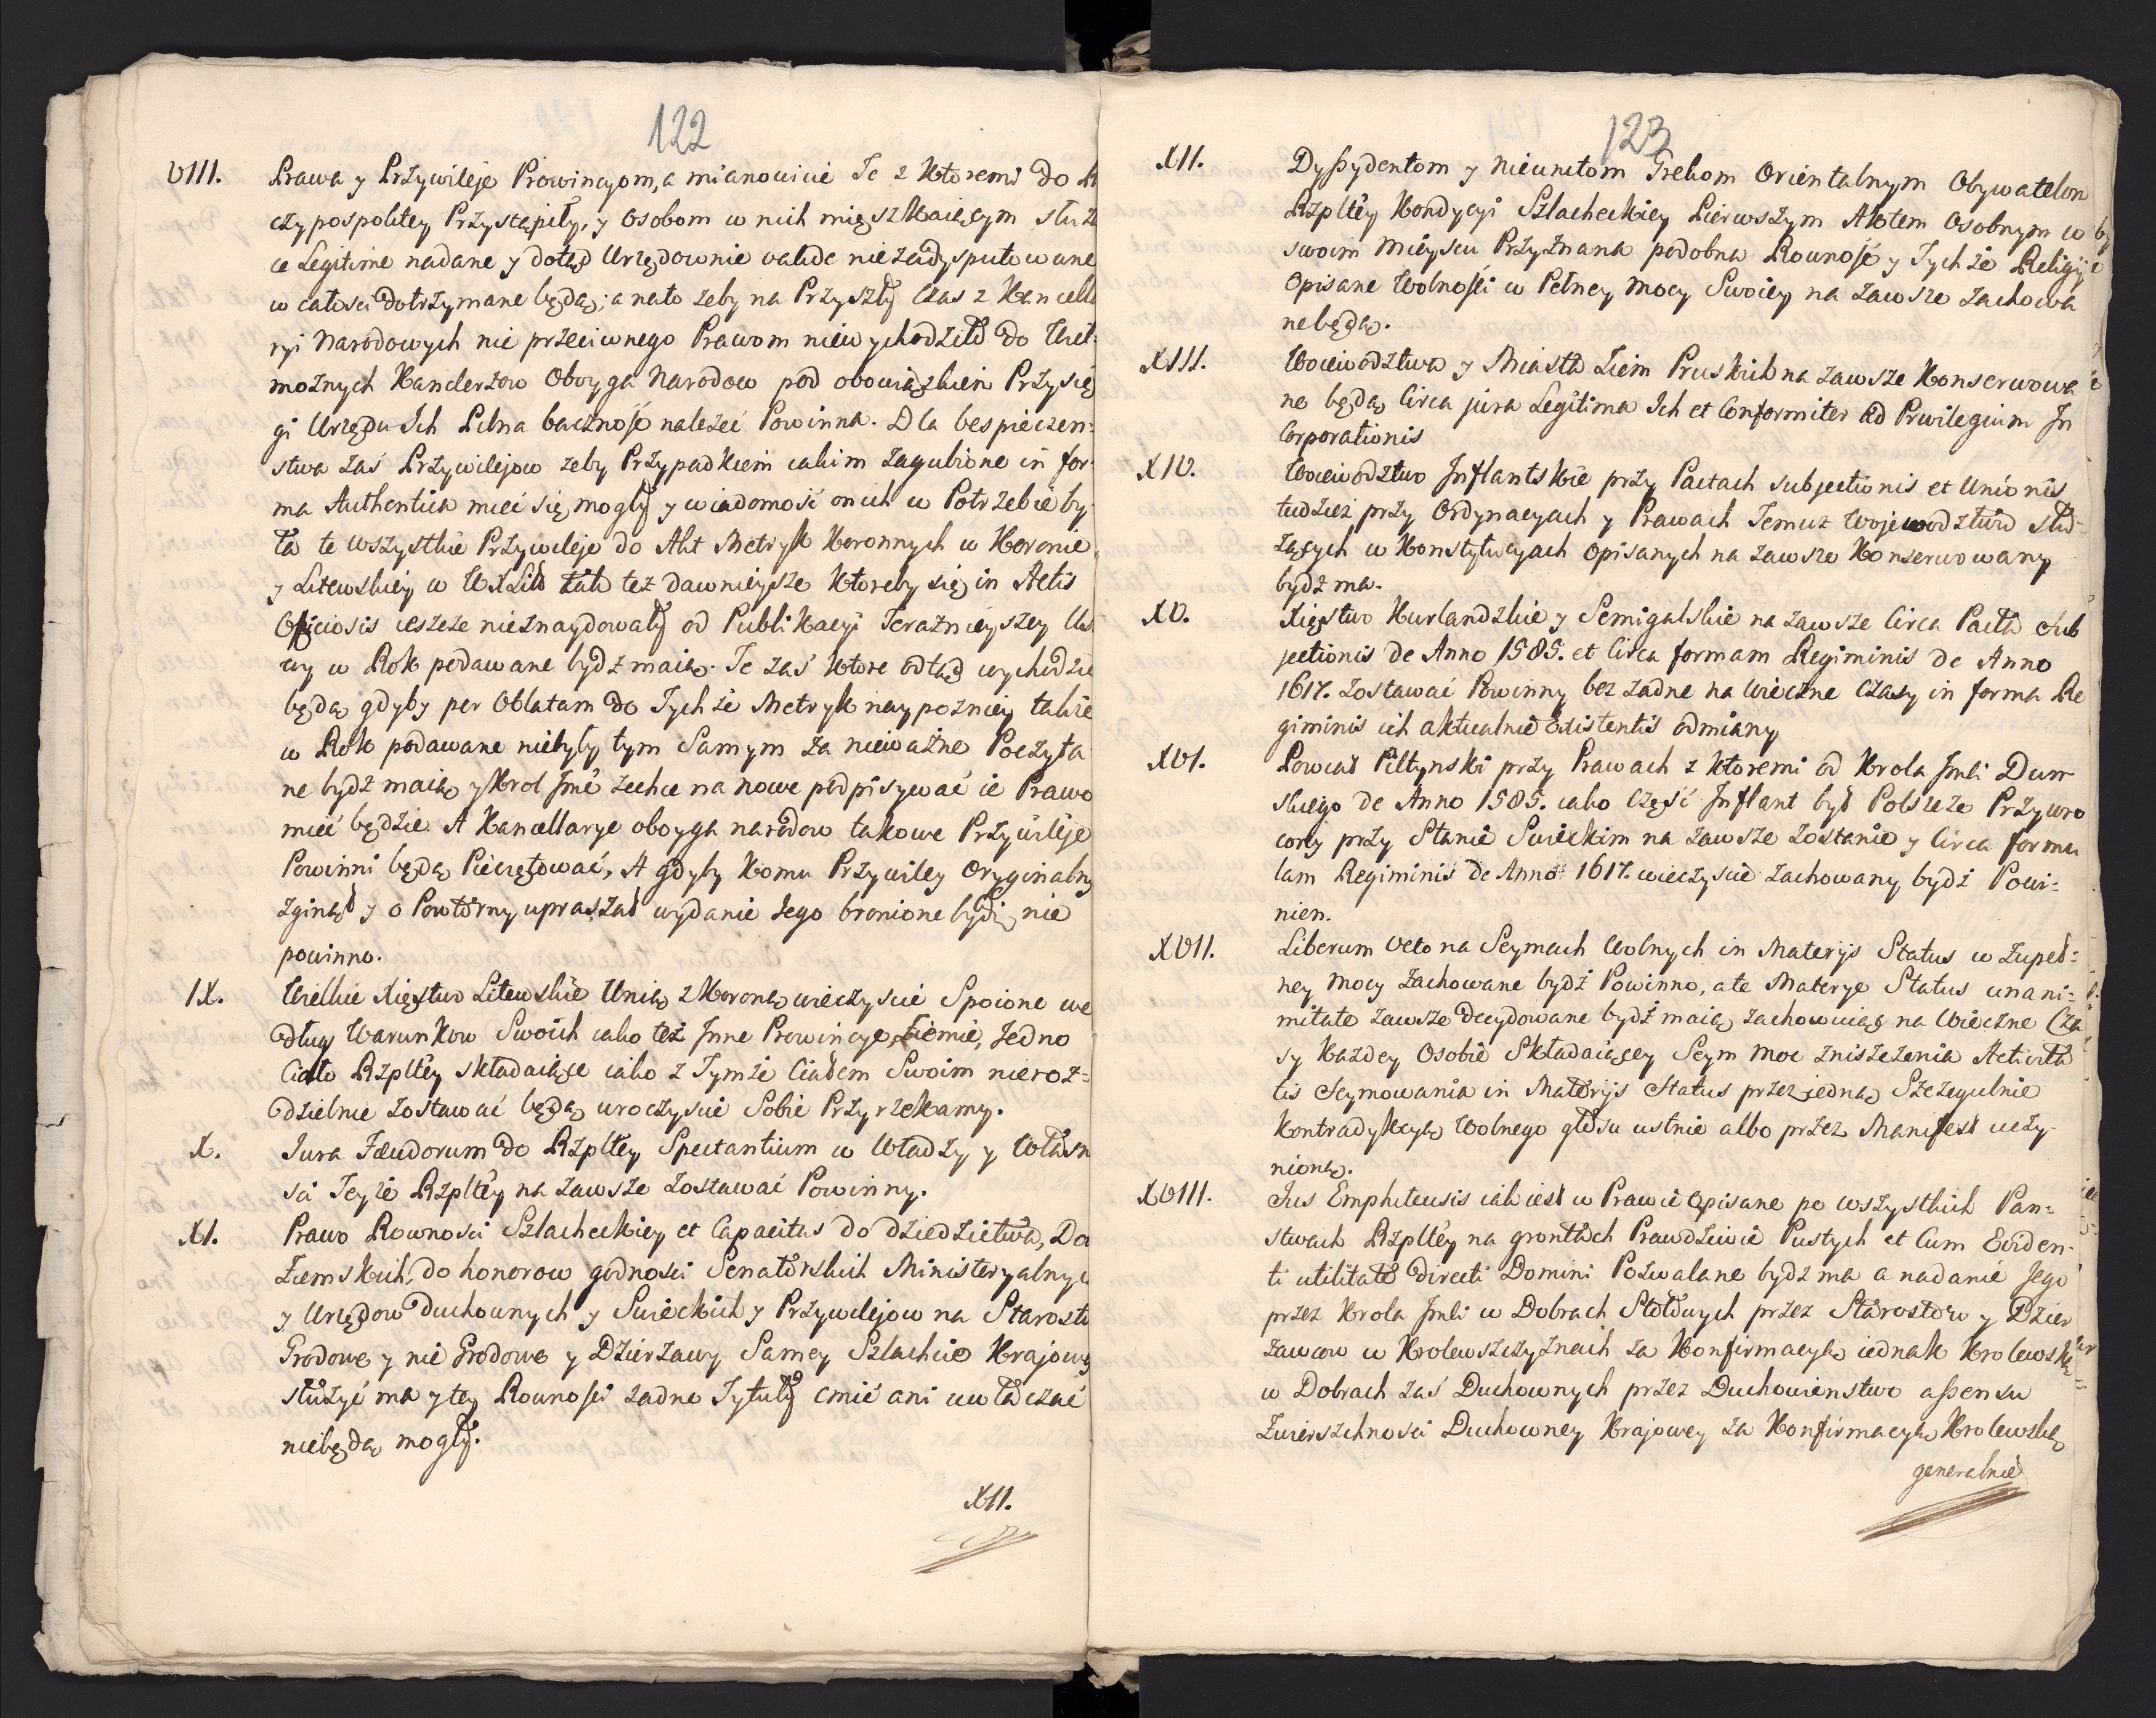 122
VIII. Prawa y Przywileje Prowincyom, a mianowicie Te z Ktoremi do R
czypospolitey Przystąpiły, y Osobom w nich mięszkaiącym służą
ce Legitime nadane y dotąd Urzędownie valide niezadysputowane
w całości dotrzymane będą; a nato zeby na Przyszły Czas z Kancella
ryi Narodowych nic przeciwnego Prawom niewychodziło do Wiel-
moznych Kanclerzow Oboyga Narodow pod obowiązkiem Przysię
gi Urzędu Ich Pilna baczność nalezeć Powinna. Dla bespieczen=
stwa zaś Przywilejow zeby Przypadkiem iakim zagubione in for-
ma Authentica mieć się mogły y wiadomość onich w Potrzebie by-
ła te wszystkie Przywileje do Akt Metryk Koronnych w Koronie
y Litewskiey w WXLitt tak też dawnieysze ktoreby się in Actis
Officiosis ieszcze nieznaydowały od Publikacyi Teraznieyszey Us
wy w Rok podawane bydź maią. Te zaś ktore odtąd wychodzić
będą gdyby per Oblatam do Tychże Metryk naypozniey także
w Rok podawane niebyły tym Samym za nieważne Poczyta
ne bydź maią y Krol Jmć zechce na nowe podpisywać ie Prawo
mieć będzie. A Kancellarye oboyga narodow takowe Przywileje
Powinni będą Pieczętować, A gdyby Komu Przywiley Oryginalny
zginął y o Powtorny upraszał wydanie Jego bronione bydź nie
powinno.
IX. Wielkie Xięstwo Litewskie Unią z Koroną wieczyście Spoione we
dług Warunkow Swoich iako też Jnne Prowincye, Ziemie, Jedno
Ciało Rzpltey składaiące iako z Tymże Ciałem Swoim nieroz=
dzielnie zostawać będą uroczyscie Sobie Przyrzekamy.
X. Jura Fæudorum do Rzpltey Spectantium w Władzy y Własn
ści Teyże Rzpltey na zawsze zostawać Powinny.
XI. Prawo Rownosci Szlacheckiey et Capacitas do dziedzictwa, Do
Ziemskich, do honorow godności Senatorskich Ministeryalnyc
y Urzędow Duchownych y Swieckich y Przywilejow na Starostw
Grodowe y nie Grodowe y Dzierzawy Samey Szlachcie Krajowey
służyć ma y tey Rownosci zadne Tytuły cmić ani uwłaczać
niebędą mogły.
XII.
123
XII. Dyssydentom y Nieunitom Grekom Orientalnym Obywatelom
Rzpltey Kondycyi Szlacheckiey Pierwszym Aktem Osobnym w
swoim Mieyscu Przyznana podobna Rownosć y Tychże Religij
Opisane Wolności w Pełney Mocy Swoiey na zawsze zachowa
ne będą.
XIII. Woiewodztwa y Miasta Ziem Pruskich na zawsze Konserwowa
ne będą Circa jura Legitima Ich et Conformiter ad Prwilegium Jn
Corporationis
XIV. Woiewodztwo Jnflantskie przy Pactach subjectionis et Unionis
tudzież przy Ordynacyach y Prawach Temuz Wojewodztwu słu=
zących w Konstytucyach opisanych na zawsze Konserwowany
bydź ma.
XV. Xięstwo Kurlandzkie y Semigalskie na zawsze Circa Pacta Sub
jectionis de Anno 1585. et Circa formam Regiminis de Anno
1617. zostawać Powinny bez zadne na Wieczne Czasy in forma Re
giminis ich aktualnie Existentis odmiany
XVI. Powiat Piltynski przy Prawach z ktoremi od Krola Jmci Dun
skiego de Anno 1585. iako Część Jnflant był Polszcze Przywro
cony przy Stanie Swieckim na zawsze zostanie y Circa formu
lam Regiminis de Anno 1617. wieczyscie zachowany bydź Powi=
nien.
XVII. Liberum Veto na Seymach Wolnych in Materijs Status w Zupeł=
ney Mocy zachowane bydź Powinno, a te Materye Status unani=
mitate zawsze decydowane bydź maią zachowuiąc na Wieczne Cza
sy Kazdey Osobie Składaiącey Seym moc zniszczenia Activita
tis Seymowania in Materijs Status przez iedną Szczegulnie
Kontradykcyą Wolnego głosu ustnie albo przez Manifest uczy-
nioną.
XVIII. Jus Emphiteusis iak iest w Prawie Opisane po wszystkich Pan=
stwach Rzpltey na gruntach Prawdziwie Pustych et Cum Eviden-
ti utilitate Directi Domini Pozwalane bydź ma a nadanie Jego
przez Krola Jmci w Dobrach Stołowych przez Starostow y Dzier
zawcow w Krolewszczyznach za Konfirmacyą iednak Krolewską
w Dobrach zaś Duchownych przez Duchowienstwo assensu
Zwierzchnosci Duchowney Krajowey za Konfirmacyą Krolewską
generalnie